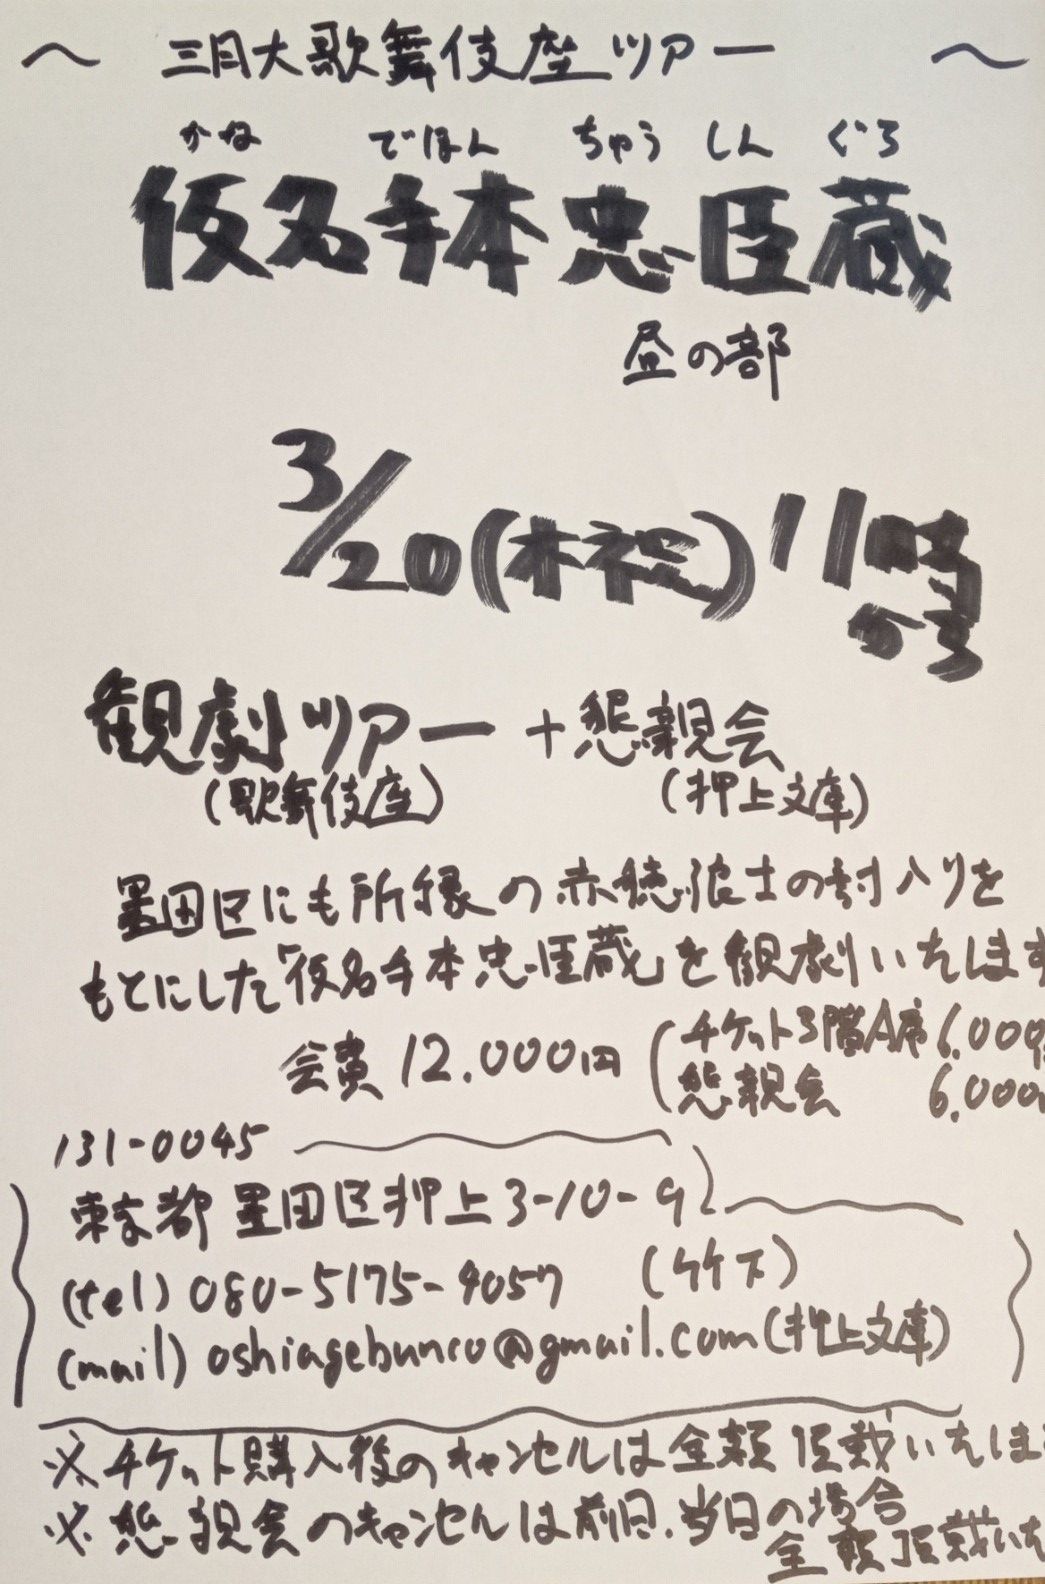 〜 三月大歌舞伎座ツアー 〜
かな でほん ちゅう しん ぐら
仮名手本忠臣蔵
昼の部
3/20(木祝)11時から
観劇ツアー+懇親会
(歌舞伎座) (押上文庫)
墨田区にも所縁の赤穂浪士の討入りを
もとにした「仮名手本忠臣蔵」を観劇いたします
会費 12.000円(チケット3階A席 6.000円
懇親会 6.000円
131-0045
東京都墨田区押上3-10-9
(tel) 080-5175-4057 (竹下)
(mail) oshiagebunco@gmail.com(押上文庫)
※チケット購入後のキャンセルは全額頂戴いたしま
※懇親会のキャンセルは前日.当日の場合
全額頂戴いた